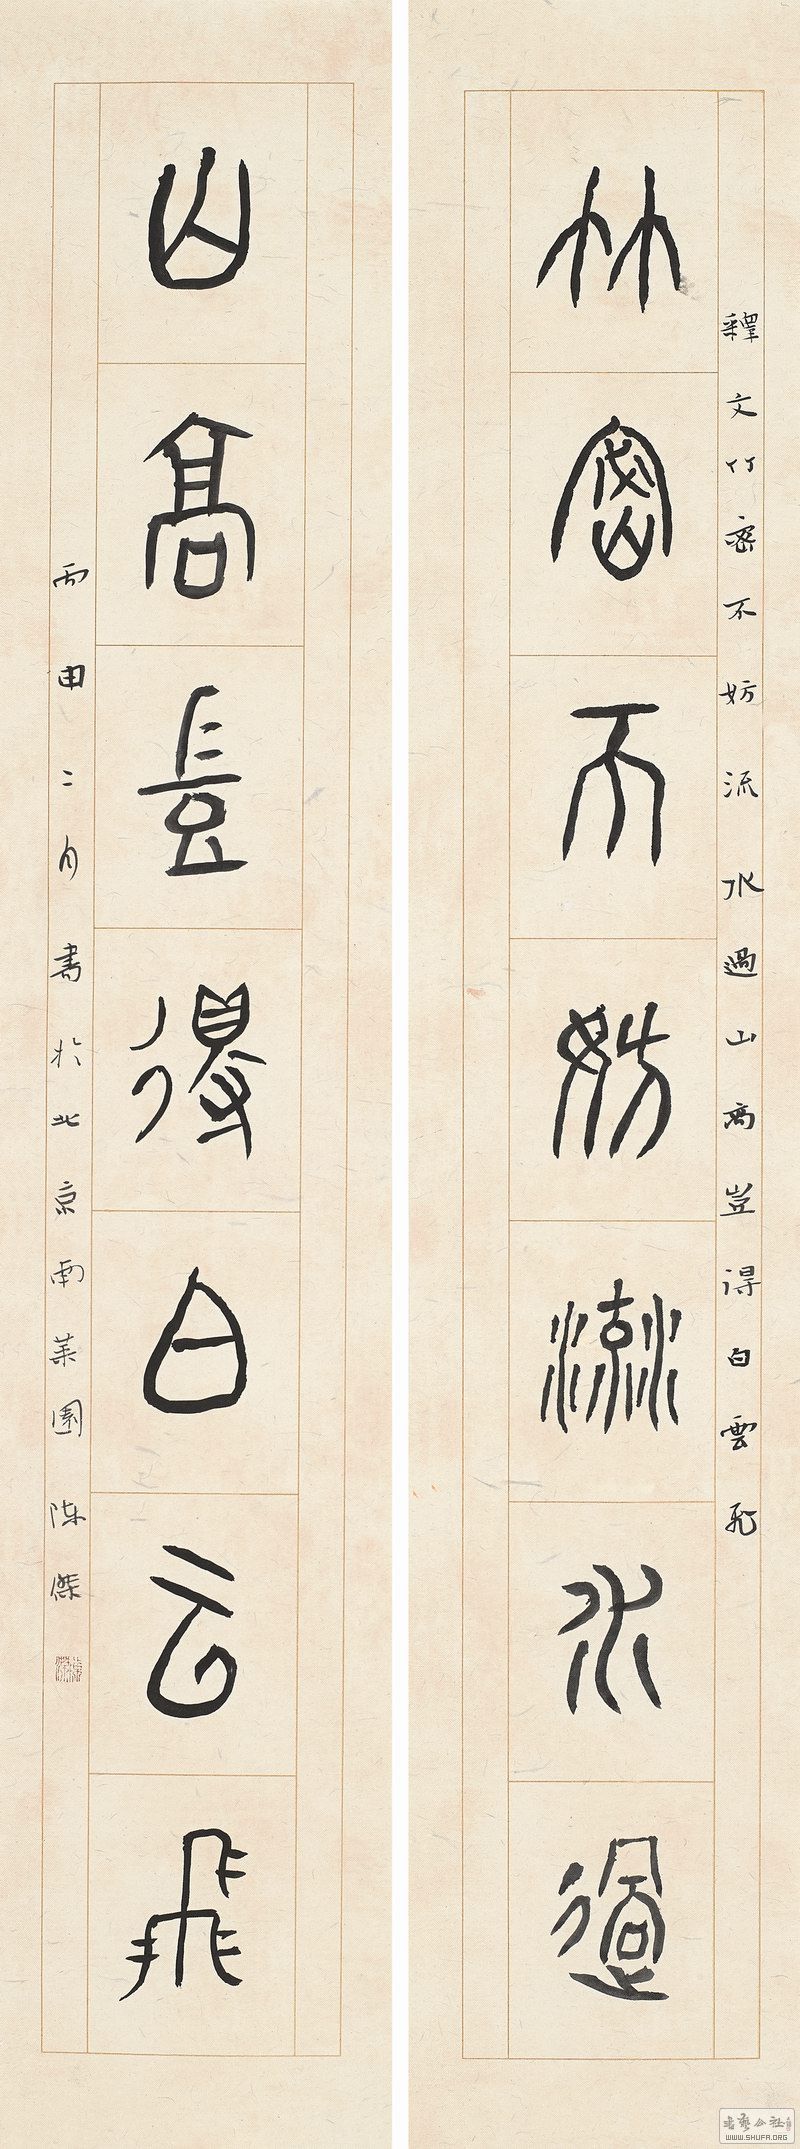 竹密不妨流水過
釋文竹密不妨流水過山高豈得白雲飛
山高豈得白云飛
丙申二月書於北京南菜園陈傑
書藝公社
WWW.SHUFA.ORG